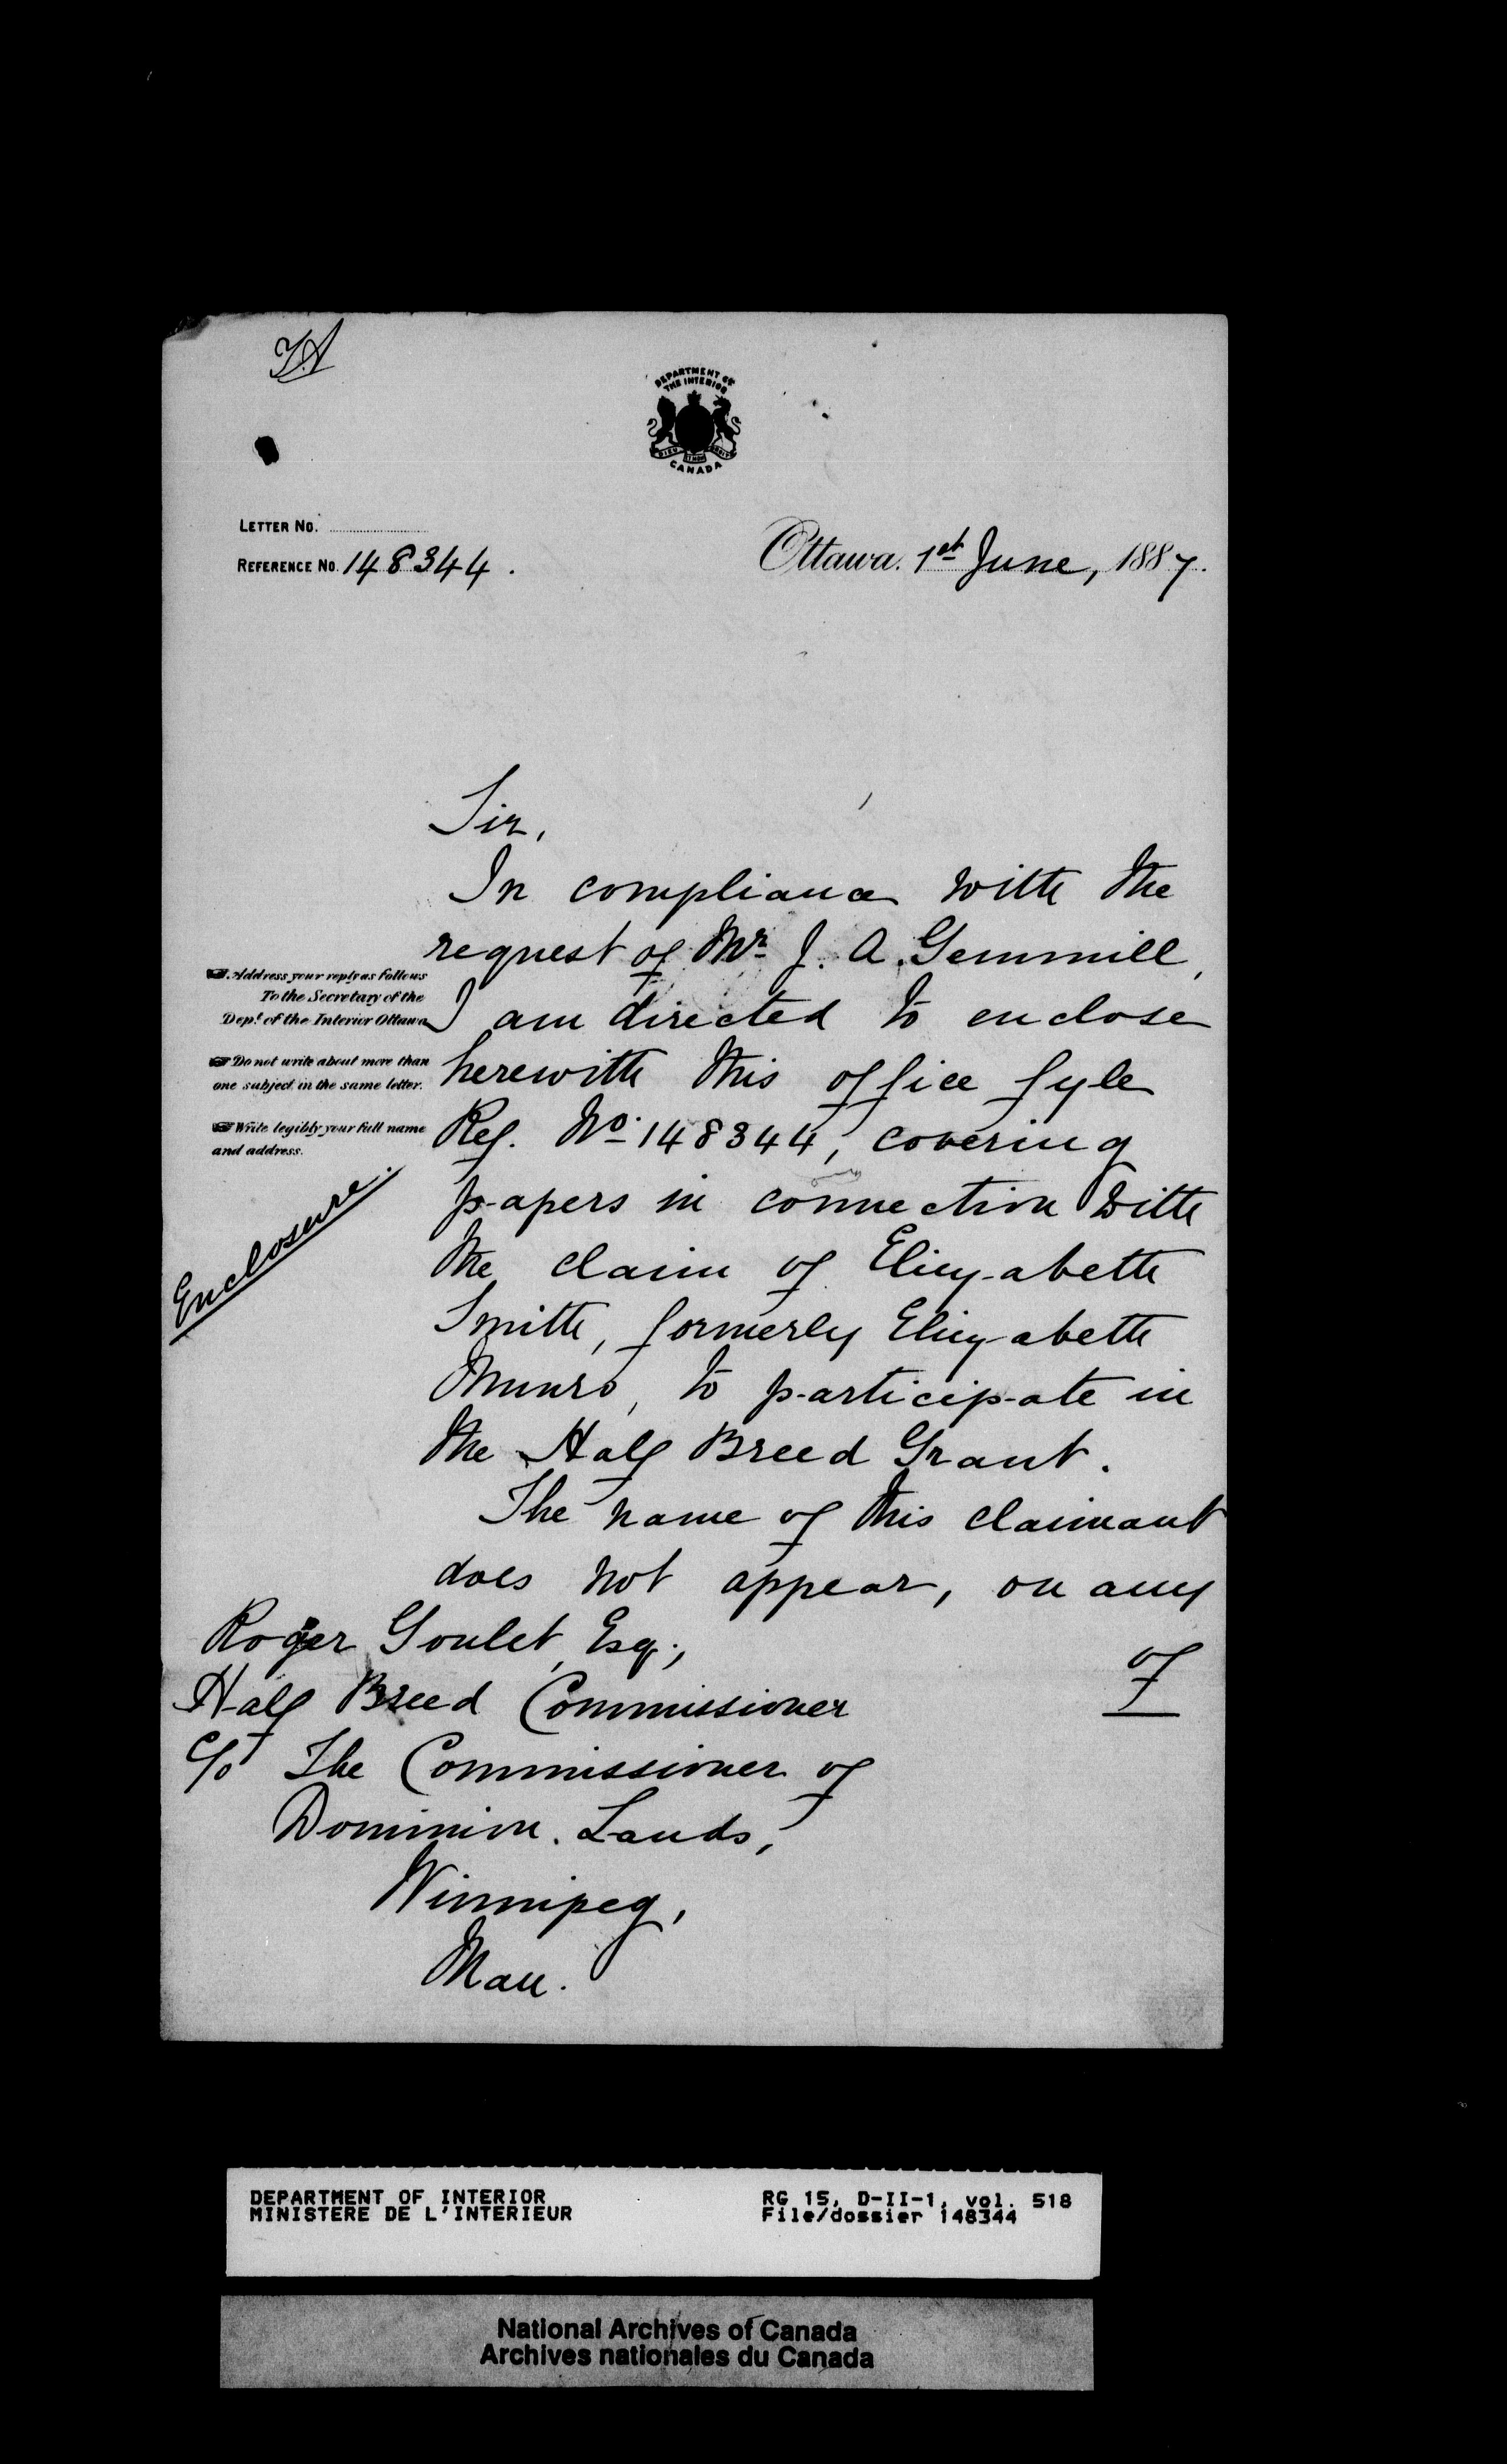 JA
DEPARTMENT OF
THE INTERIOR
CANADA
LETTER NO.
REFERENCE NO. 148344.
Ottawa. 1st June, 1887.
Sir,
In compliance with the
request of Mr. J. A. Gemmill,
I am directed to enclose
herewith this office fyle
Ref. No. 148344, covering
papers in connection with
the claim of Elizabeth
Smith, formerly Elizabeth
Munro, to participate in
the Half Breed Grant.
The name of this claimant
does not appear, on any
of
Address your reply as follows
To the Secretary of the
Dept. of the Interior Ottawa
Do not write about more than
one subject in the same letter.
Write legibly your full name
and address.
Enclosure.
Roger Goulet, Esq.,
Half Breed Commissioner
c/o The Commissioner of
Dominion. Lands,
Winnipeg,
Man.
DEPARTMENT OF INTERIOR
MINISTERE DE L'INTERIEUR
RG 15, D-II-1, vol. 518
File/dossier 148344
National Archives of Canada
Archives nationales du Canada